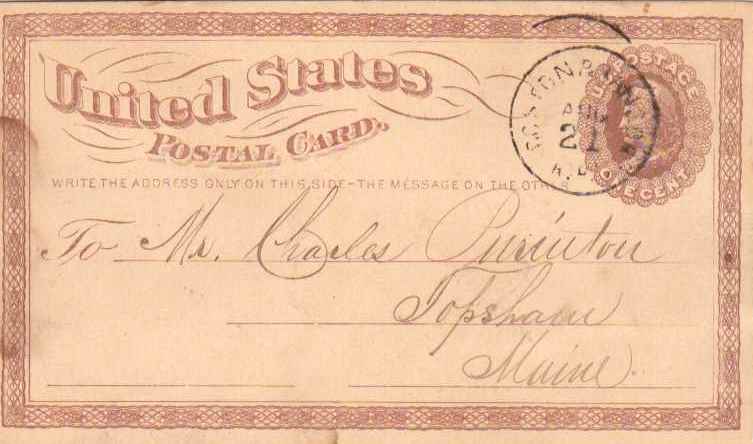 United States
POSTAL CARD.
WRITE THE ADDRESS ONLY ON THIS SIDE-THE MESSAGE ON THE OTHER
U.S. POSTAGE
ONE CENT
AUG
21
To Mr. Charles Purinton
Topsham
Maine.